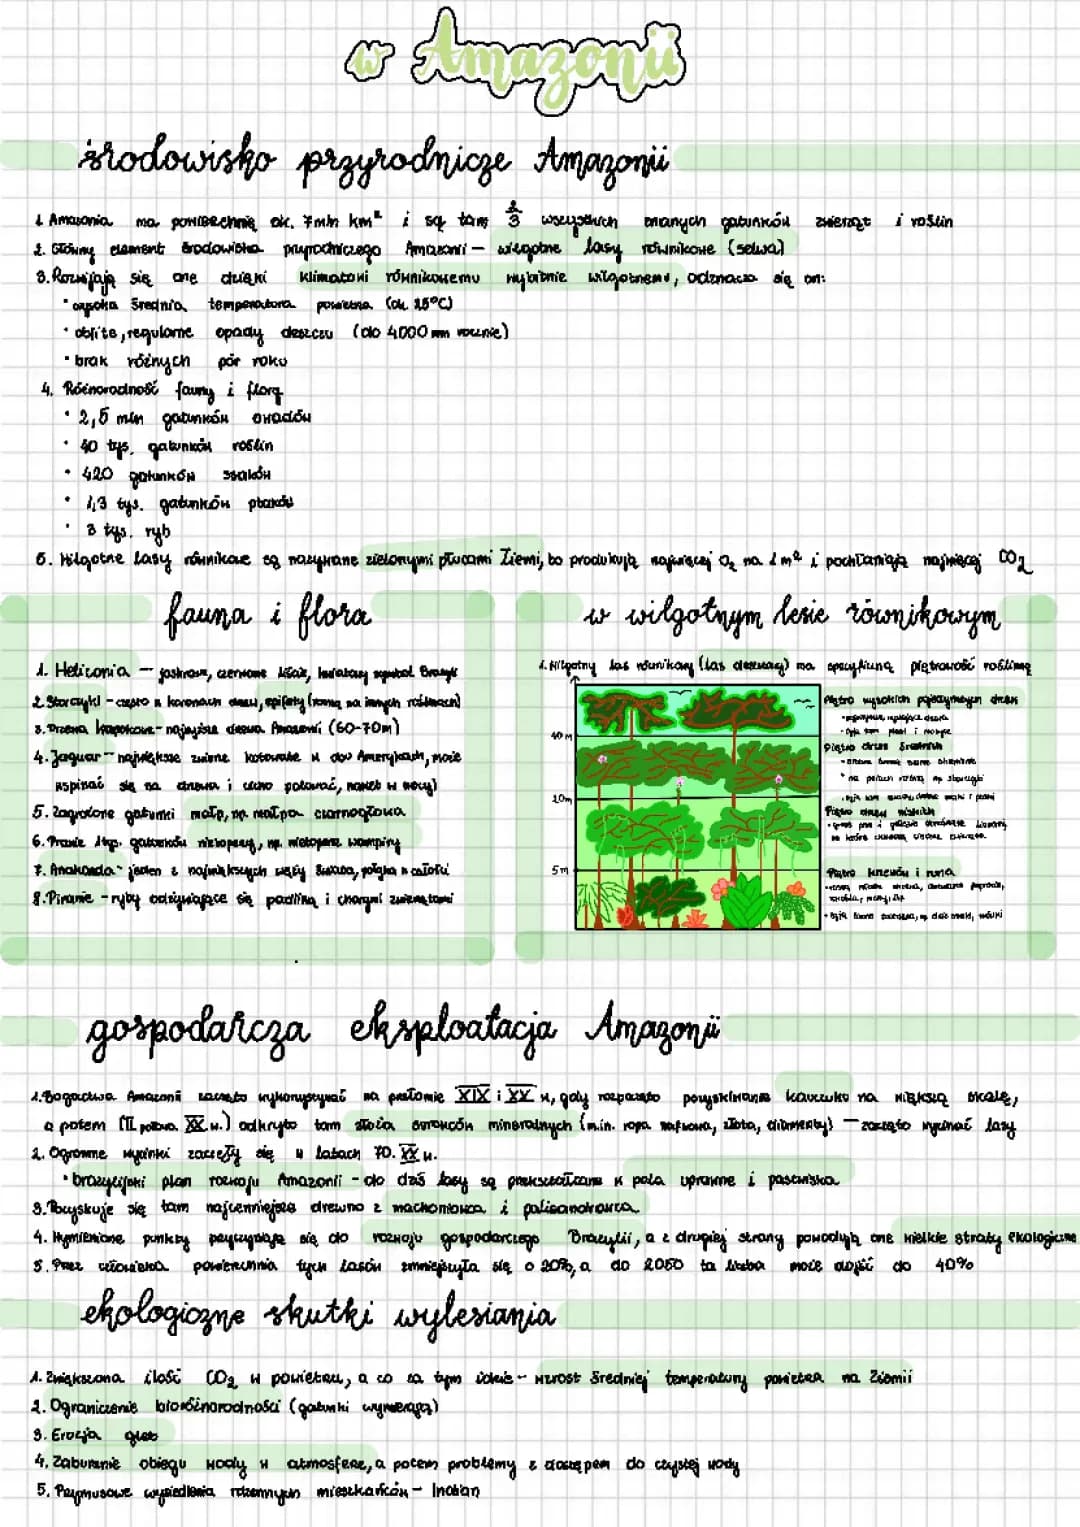 w Amazonii
środowisko przyrodnicze Amazonii
1. Amazonia ma powierzchnię ok. 7 mln km² i są tam 1/3 wszystkich znanych gatunków zwierząt i roślin
2. Główny element środowiska przyrodniczego Amazonii – wilgotne lasy równikowe (selwa)
3. Rozwijają się one dzięki klimatowi równikowemu wybitnie wilgotnemu, odznacza się on:
• wysoka średnia temperatura powietrza (ok. 25°C)
• obfite, regularne opady deszczu (do 4000 mm rocznie)
• brak różnych pór roku
4. Różnorodność fauny i flory
• 2,5 mln gatunków owadów
• 40 tys. gatunków roślin
• 420 gatunków ssaków
• 1,3 tys. gatunków ptaków
• 3 tys. ryb
5. Wilgotne lasy równikowe są nazywane zielonymi płucami Ziemi, bo produkują najwięcej O₂ na 1 m² i pochłaniają najwięcej CO₂
fauna i flora
1. Heliconia – jaskrawe, czerwone liście, kwiatowy symbol Brazylii
2. Storczyki – często w koronach drzew, epifity (rosną na innych roślinach)
3. Drzewa kapokowe – najwyższe drzewa Amazonii (60-70m)
4. Jaguar – największe zwierzę kotowate w obu Amerykach, może
wspinać się na drzewa i cicho polować, nawet w nocy)
5. Zagrożone gatunki małp, np. małpa czarnogłowa
6. Prawie tys. gatunków nietoperzy, np. nietoperze wampiry
7. Anakonda – jeden z największych węży świata, połyka w całości
8. Piranie – ryby odżywiające się padliną i chorymi zwierzętami
w wilgotnym lesie równikowym
1. Wilgotny las równikowy (las deszczowy) ma specyficzną piętrowość roślinną
Piętro wysokich pojedynczych drzew
• żyją tam ptaki i motyle
40 m
Piętro drzew średnich
• na pniach rosną np. storczyki
20m
Piętro drzew niskich
5 m
Piętro krzewów i runa
gospodarcza eksploatacja Amazonii
1. Bogactwa Amazonii zaczęto wykorzystywać na przełomie XIX i XX w, gdy rozpoczęto pozyskiwanie kauczuku na większą skalę,
a potem (II połowa XX w.) odkryto tam złoża surowców mineralnych (m.in. ropa naftowa, złoto, diamenty) – zaczęto wycinać lasy
2. Ogromne wycinki zaczęły się w latach 70. XX w.
• brazylijski plan rozwoju Amazonii – do dziś lasy są przekształcane w pola uprawne i pastwiska
3. Pozyskuje się tam najcenniejsze drewno z machoniowca i palisandrowca
4. Wymienione punkty przyczyniają się do rozwoju gospodarczego Brazylii, a z drugiej strony powodują one wielkie straty ekologiczne
5. Przez człowieka powierzchnia tych lasów zmniejszyła się o 20%, a do 2050 ta liczba może dojść do 40%
ekologiczne skutki wylesiania
1. Zwiększona ilość CO₂ w powietrzu, a co za tym idzie – wzrost średniej temperatury powietrza na Ziemii
2. Ograniczenie bioróżnorodności (gatunki wymierają)
3. Erozja gleb
4. Zaburzenie obiegu wody w atmosferze, a potem problemy z dostępem do czystej wody
5. Przymusowe wysiedlenia rdzennych mieszkańców – Indian